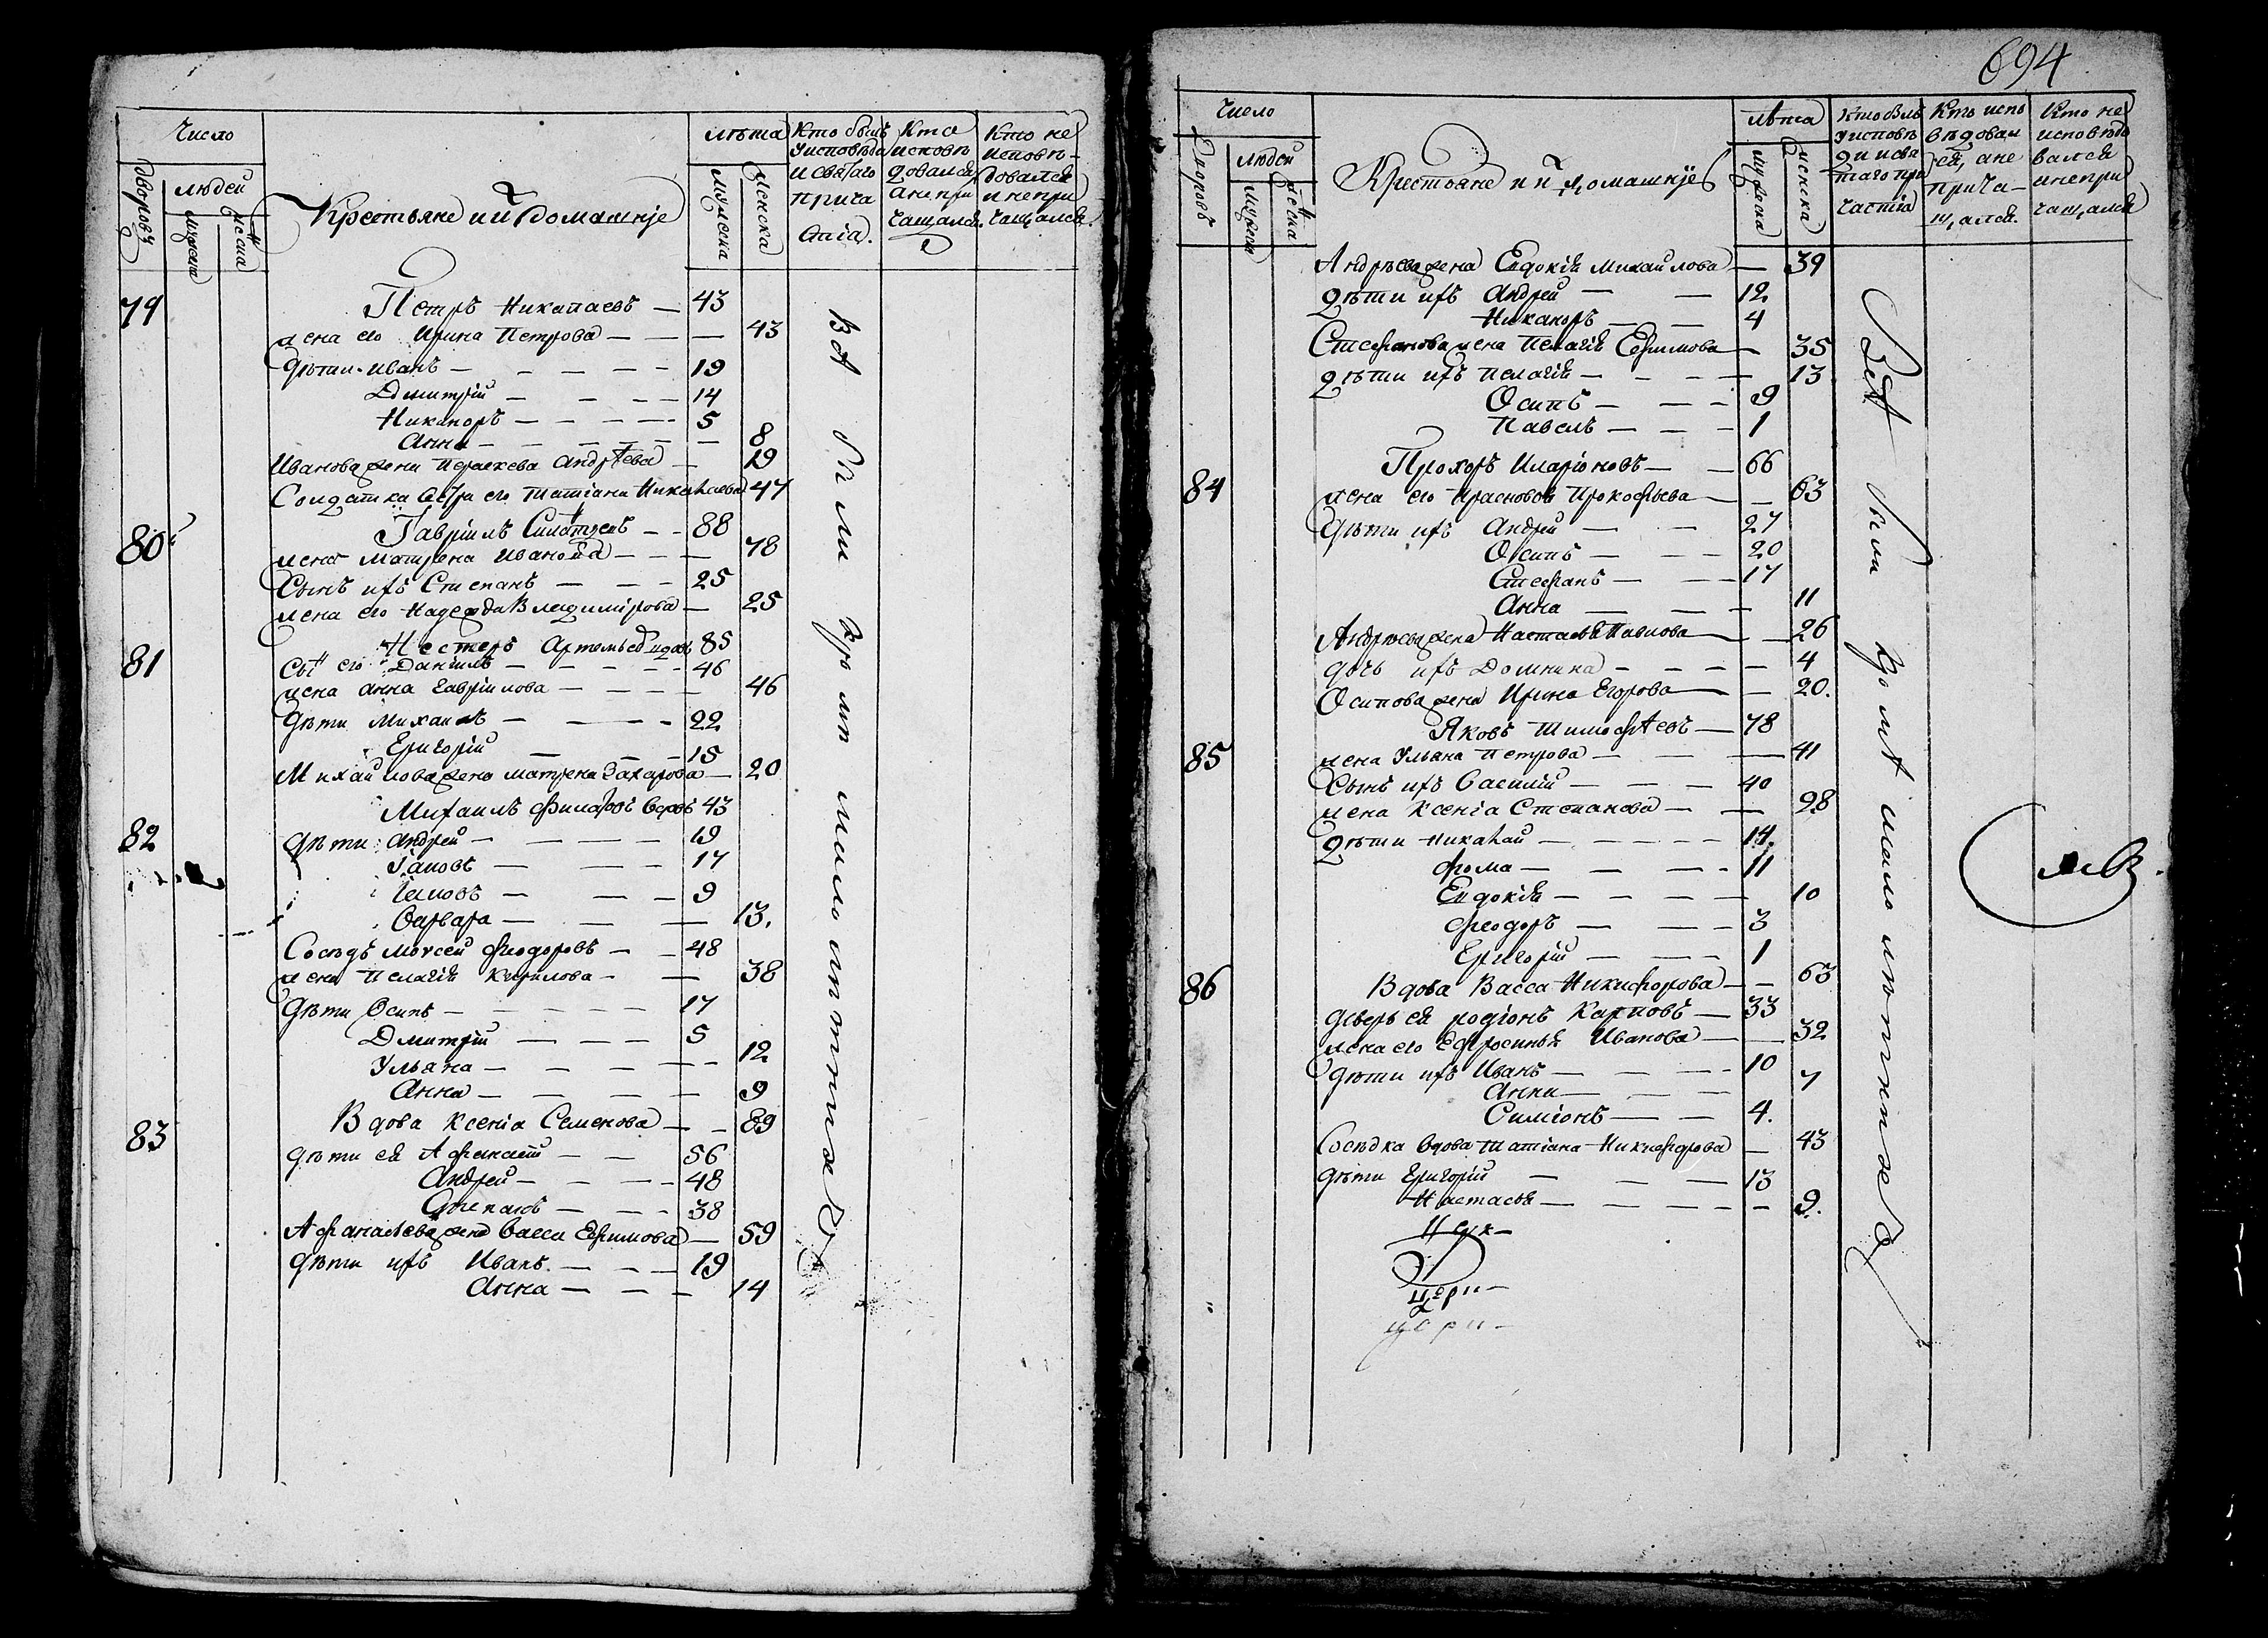 Число
дворовъ
людей
мужеска
женска
Крестьяне и ихъ домашніе
лѣта
мужеска
женска
Кто былъ у исповѣди и святаго причастія.
Кто исповѣдовался, а не причащался.
Кто не исповѣдовался и не причащался.
79 Петръ Никалаевъ — 43
жена его Ирина Петрова — — — 43
дѣти Иванъ — — — — 19
Дмитрій — — — 14
Никаноръ — — — — 5
Анна — — — — — 8
Иванова жена Параскева Андрѣева — 19
Солдатка сестра его Татіана Никалаева 47
80 Гавріилъ — — 88
жена Матрена Иванова — — — 78
Сынъ ихъ Степанъ — — — 25
жена его Надежда Владимірова — 25
81 Нестеръ 85
его Даніилъ — — — — 46
жена Анна Гавриилова — — — 46
дѣти Михаилъ — — — 22
Григорій — — — 15
Михайлова жена Матрена Захарова — 20
82 Михаилъ 43
дѣти Андрей — — — — 19
Іаковъ — — — 17
Іаковъ — — — 9
Варвара — — — 13.
Сосѣдъ Моѵсей Феодоровъ — — 48
жена Пелагія Кирилова — — 38
дѣти Осипъ — — — — 17
Дмитрій — — — 5
Ульяна — — — — — 12
Анна — — — — 9
83 Вдова Ксенія Семенова — — 89
дѣти ея Афанасій — — 56
Андрей — — — 48
Степанъ — — — 38
Афанасьева жена Васса Ефимова — 59
дѣти ихъ Иванъ — — — 19
Анна — — — 14
Всѣ были кромѣ малолѣтнихъ
694
Число
Дворовъ
людей
мужеска
женска
Крестьяне и ихъ домашніе
лѣта
мужеска
женска
Кто былъ у исповѣди и святаго причастія
Кто исповѣдовался, а не причащался.
Кто не исповѣдовался и не причащался
Андрѣева жена Евдокія Михайлова — 39
дѣти ихъ Андрей — — 12
Никаноръ — — 4
Стефанова жена Пелагія Ефимова — 35
дѣти ихъ Пелагія — — — — 13
Осипъ — — — 9
Павелъ — — — 1
84 Прохоръ Иларіоновъ — — 66
жена его Прокофьева — — 63
дѣти ихъ Андрей — — 27
Осипъ — — — 20
Стефанъ — — — 17
Анна — — — 11
Андрѣева жена Настасья Павлова — — 26
дочь ихъ Домника — — — — 4
Осипова жена Ирина Егорова — — 20.
85 Яковъ Тимофѣевъ — 78
жена Ульяна Петрова — — — 41
Сынъ ихъ Василій — — — 40
жена Ксенія Степанова — — — 28
дѣти Никалай — — — — — 14.
Фома — — — — 11
Евдокія — — — — — 10
Феодоръ — — — 3
Григорій — — — 1
86 Вдова Васса Никифорова — — 63
деверь ея Родіонъ Карповъ — 33
жена его Ефросинья Иванова — — 32
дѣти ихъ Иванъ — — — 10
Анна — — — 7
Симіонъ — — 4.
Сосѣдка вдова Татіана Никифорова — 43
дѣти Григорій — — — 13
Настасья — — — — — — 9.
Всѣ были кромѣ малолѣтнихъ